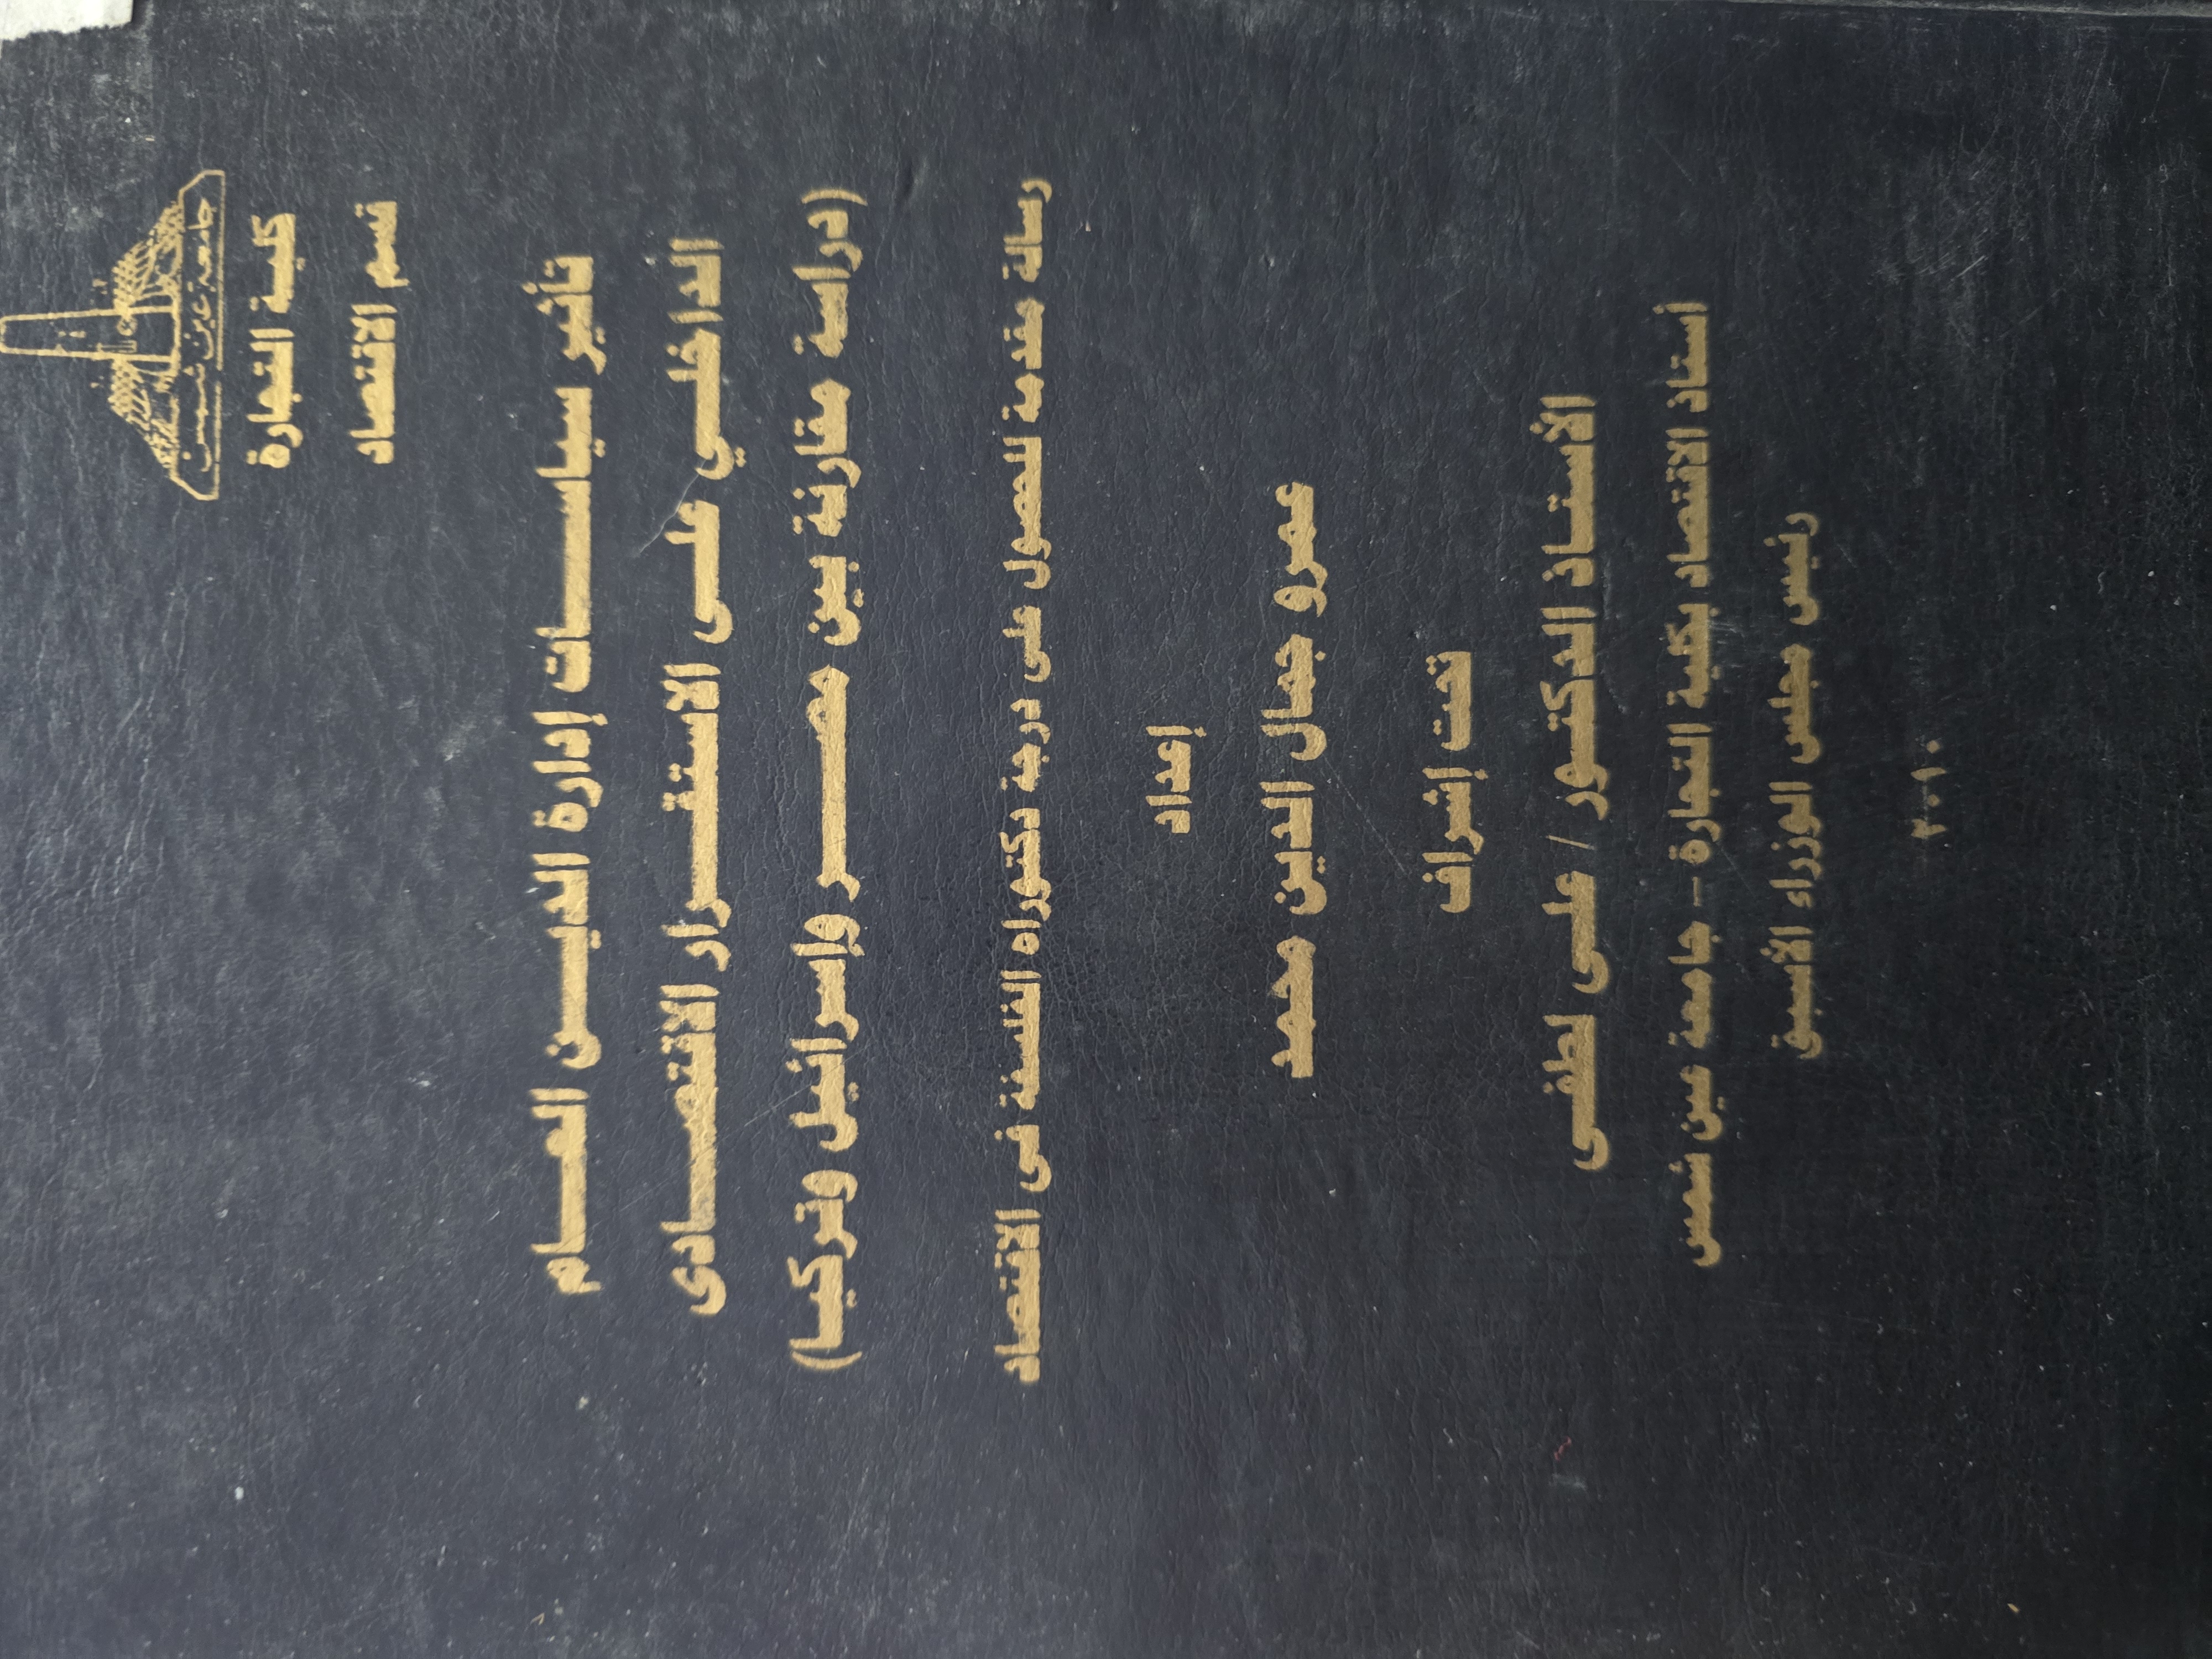 جامعة عين شمس
كلية التجارة
قسم الاقتصاد
تأثير سياسات إدارة الدين العام
الداخلي على الاستقرار الاقتصادى
(دراسة مقارنة بين مصر وإسرائيل وتركيا)
رسالة مقدمة للحصول على درجة دكتوراه الفلسفة فى الاقتصاد
إعداد
عمرو جمال الدين محمد
تحت إشراف
الأستاذ الدكتور / على لطفى
أستاذ الاقتصاد بكلية التجارة – جامعة عين شمس
رئيس مجلس الوزراء الأسبق
٢٠١٠